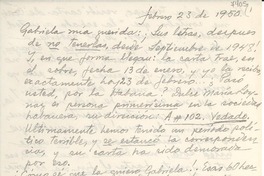 febrero 23 de 1950!!
Gabriela mia querida: ¡Sus letras, despues
de no tenerlas, desde Septiembre de 1948!
Y, en que forma llegan! la carta trae, en
el sobre, fecha 13 de enero, y la recibo
exactamente hoy 23 de febrero! ¿Pasó
usted, por la Habana? Dulce María Loy-
naz es persona primerísima en la sociedad
habanera; su direccion: A #102, Vedado.
Ultimamente hemos tenido un período polí-
tico terrible, y se estancó la corresponden-
cia, y su carta ha sido demorada
por eso.
¡Como sé que la quiero, Gabriela!